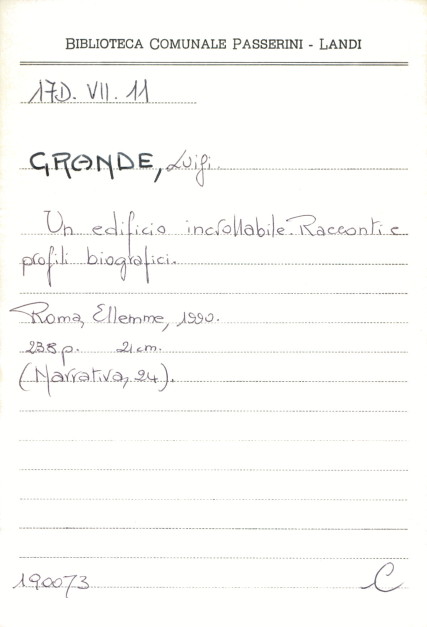 BIBLIOTECA COMUNALE PASSERINI - LANDI
17D. VII. 11
GRANDE, Luigi.
Un edificio incrollabile. Racconti e
profili biografici.
Roma, Ellemme, 1990.
238 p. 21 cm.
(Narrativa, 24).
190073
C